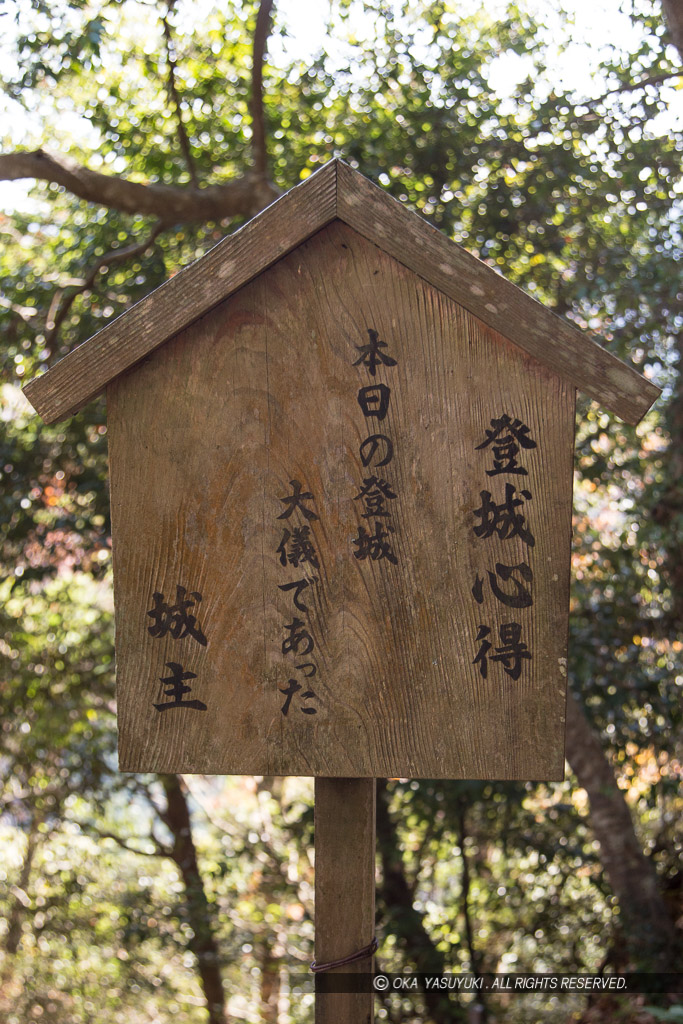 登城心得
本日の登城
大儀であった
城主
© OKA YASUYUKI. ALL RIGHTS RESERVED.